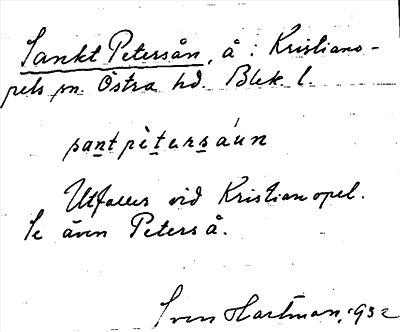 Sankt Petersån, å: Kristiano-
pels sn. Östra hd. Blek. l.
santpètersáun
Utfaller vid Kristianopel.
Se även Peterså.
Sven Hartman, 1932